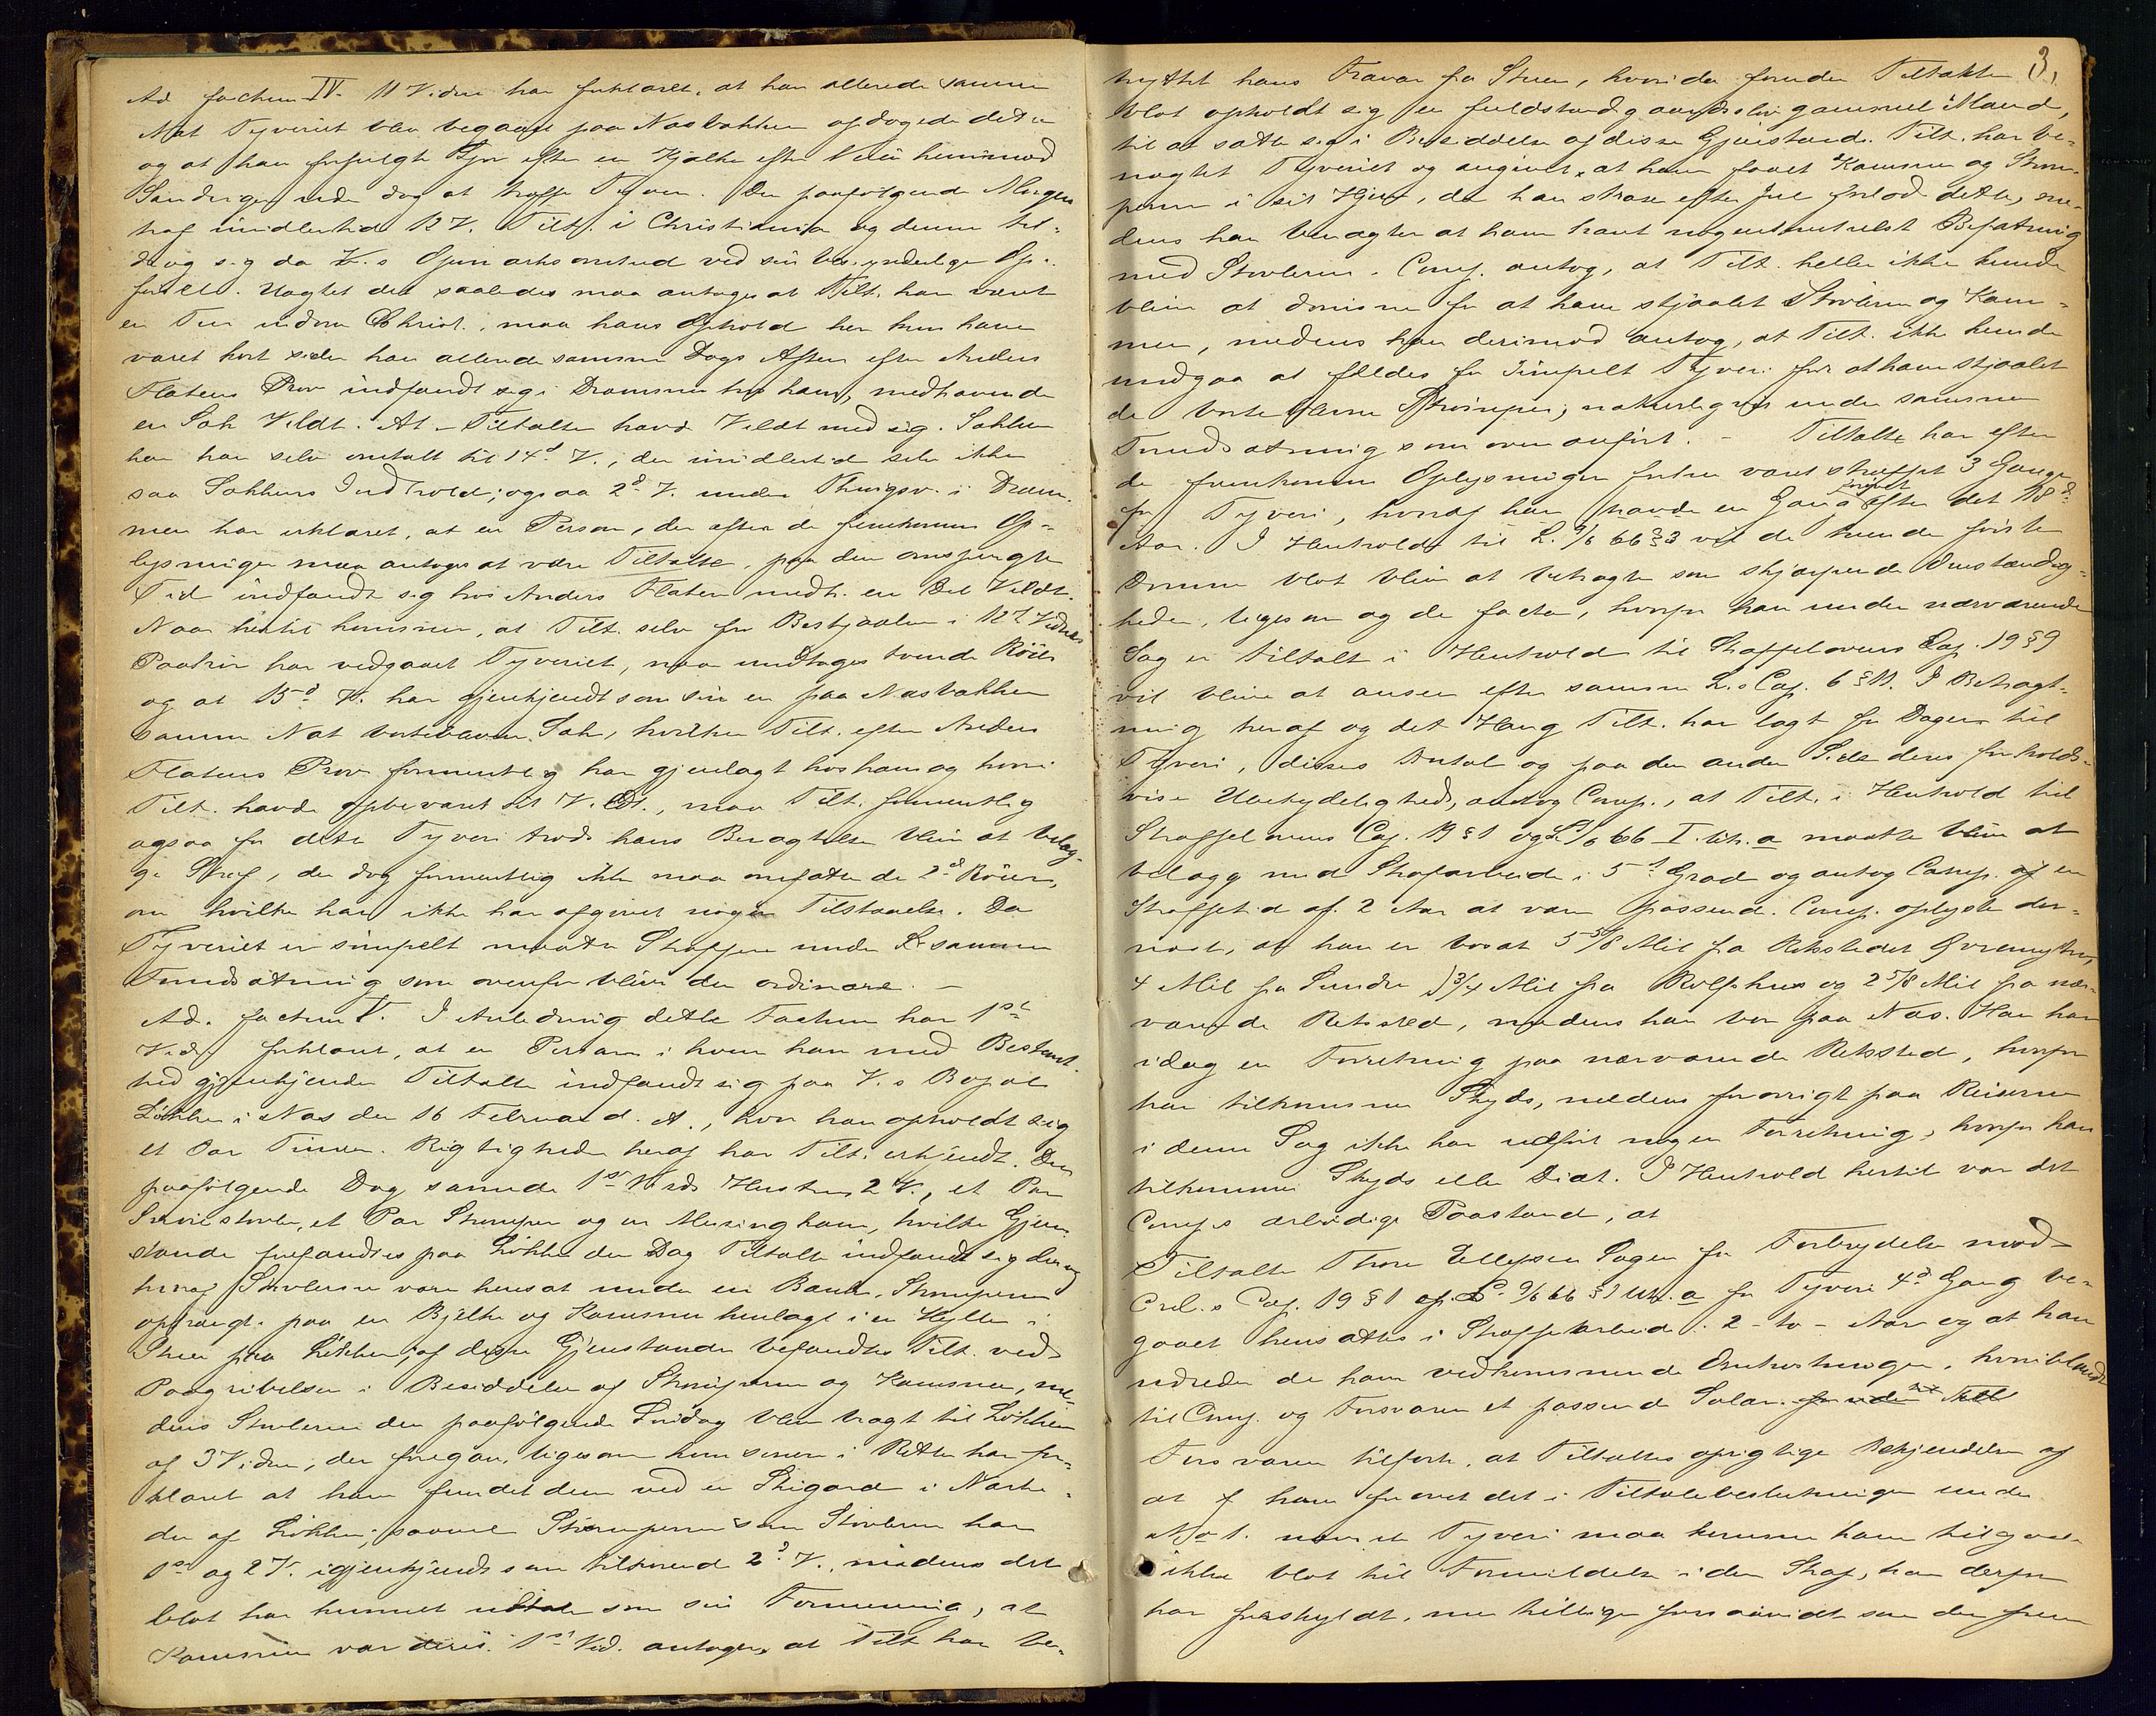 Ad factum IV. 11 Vidne har forklaret, at han allerede samme
Nat Tyveriet blev begaaet paa Næsbakken opdagede dette
og at han forfulgte Spor efter en Kjælke efter Veien henimod
Sandvigen uden dog at træffe Tyven. Den paafølgende Morgen
traf imidlertid 12 V. Tilt. i Christiania og denne til-
drog sig da V.s Opmærksomhed ved sin besynderlige Op-
førsel. Uagtet det saaledes maa antages at Tilt. har været
en Tur indom Christ., maa hans Ophold her kun have
været kort siden han allerede samme Dags Aften efter Anders
Flatens Prov indfandt sig i Drammen hos ham, medhavende
en Sæk Vildt. At Tiltalte havde Vildt med sig i Sækken
har han selv omtalt til 14de V., der imidlertid selv ikke
saa Sækkens Indhold; ogsaa 2d V. under Thingsv. i Dram-
men har erklæret, at en Person, der efter de fremkomne Op-
lysninger maa antages at være Tiltalte, paa den omspurgte
Tid indfandt sig hos Anders Flaten medh. en Del Vildt.
Naar hertil kommer, at Tilt. selv for Bestjaalne i 12te Vidnes
Paahør har vedgaaet Tyveriet, naar undtages tvende Röier
og at 15d V. har gjenkjendt som sin en paa Næsbakken
samme Nat bortkommen Sæk, hvilken Tilt. efter Anders
Flatens Prov formentlig har gjenlagt hos ham og hvori
Tilt. havde opbevaret sit Vildt, maa Tilt. formentlig
ogsaa for dette Tyveri trods hans Benægtelse blive at belæg-
ge Straf, der dog formentlig ikke maa omfatte de 2de Röier,
om hvilke han ikke har afgivet nogen Tilstaaelse. Da
Tyveriet er simpelt maatte Straffen under samme
Forudsætning som ovenfor blive den ordinære. –
Ad. factum V. I Anledning dette Factum har 1ste
Vidne forklaret, at en Person i hvem han med Bestemt-
hed gjenkjender Tiltalte indfandt sig paa V.s Bopæl
Løkken i Næs den 16 Februar d. A., hvor han opholdt sig
et Par Timer. Rigtigheden heraf har Tilt. erkjendt. Den
paafølgende Dag savnede 1ste Vids Hustru 2 V., et Par
Snørestøvler, et Par Strømper og en Messingkam, hvilke Gjen-
stande forefandtes paa Løkken den Dag Tiltalte indfandt sig der og
hvoraf Støvlerne vare hensat under en Bænk, Strømperne
ophængt paa en Bjelke og Kammen henlagt i en Hylle i
Stuen paa Løkken; af disse Gjenstande befandtes Tilt. ved
Paagribelsen i Besiddelse af Strømperne og Kammen, me-
dens Støvlerne den paafølgende Søndag blev bragt til Løkken
af 3 Vidne, der foregav, ligesom hun senere i Retten har for-
klaret at have fundet dem ved en Skigard i Nærhe-
den af Løkken; saavel Strømperne som Støvlerne har
1ste og 2 V. igjenkjendt som tilhørende 2d V., medens det
blot har kunnet udtale som sin Formening, at
Kammen var deres. 1ste Vid. antager, at Tilt. har be-
3.
nyttet hans Fravær fra Stuen, hvori da foruden Tiltalte
blot opholdt sig en fuldstændig aandssløv gammel Mand,
til at sætte sig i Besiddelse af disse Gjenstande. Tilt. har be-
nægtet Tyveriet og angivet, at have faaet Kammen og Strøm-
perne i sit Hjem, da han strax efter Jul forlod dette, me-
dens han benægter at have havt nogensomhelst Befatning
med Støvlerne. Comp. antog, at Tilt. heller ikke kunde
blive at dømme for at have stjaalet Støvlerne og Kam-
men, medens han derimod antog, at Tilt. ikke kunde
undgaa at fældes for simpelt Tyveri for at have stjaalet
de bortkomne Strømper, naturligvis under samme
Forudsætning som oven anført. – Tiltalte har efter
de fremkomne Oplysninger forhen været straffet 3 Gange
for Tyveri, hvoraf han havde en Gang øvet efter det 18d
Aar. I Henhold til L. 9/6 66 § 3 vil de tvende første
Domme blot blive at betragte som skjærpende Omstændig-
heder, ligesom og de facta, hvorfor han under nærværende
Sag er tiltalt i Henhold til Straffelovens Cap. 19 § 9
vil blive at ansee efter samme L.s Cap. 6 § 11. I Betragt-
ning heraf og det Hang Tilt. har lagt for Dagen til
Tyveri, disses Antal og paa den anden Side deres forholds-
vise Ubetydelighed, antog Comp., at Tilt. i Henhold til
Straffelovens Cap. 19 § 1 og L 9/6 66 I litr. a maatte blive at
belægge med Strafarbeide i 5te Grad og antog Comp. af en
Straffetid af 2 Aar at være passende. Comp. oplyste der-
næst, at han er bosat 5 5/8 Mil fra Retsstedet
4 Mil fra Sundre 3/4 Mil fra Rolfshus og 2 5/8 Mil fra nær-
værende Retssted, medens han bor paa Næs. Han har
idag en Forretning paa nærværende Retssted, hvorfor
han tilkommer Skyds, medens forøvrigt paa Reiserne
i denne Sag ikke har udført nogen Forretning, hvorfor han
tilkommer Skyds eller Diæt. I Henhold hertil var det
Comp.s ærbødige Paastand, at
Tiltalte Thore Ellefsen Sagen for Forbrydelse mod
Crl.s Cap. 19 § 1 cfr. L. 9/6 66 § 1 litr. a for Tyveri 4d Gang be-
gaaet hensættes i Straffearbeide i 2 – to – Aar og at han
udreder de ham vedkommende Omkostninger, hvoriblandt
til Comp. og Forsvaren et passende Salær.
Forsvaren tilførte, at Tiltaltes oprigtige Bekjendelse af
at have forøvet det i Tiltalebeslutningen under
No 1. nævnte Tyveri maa komme ham tilgode
ikke blot til Formildelse i den Straf, han derfor
har forskyldt, men tillige forsaavidt som den frem